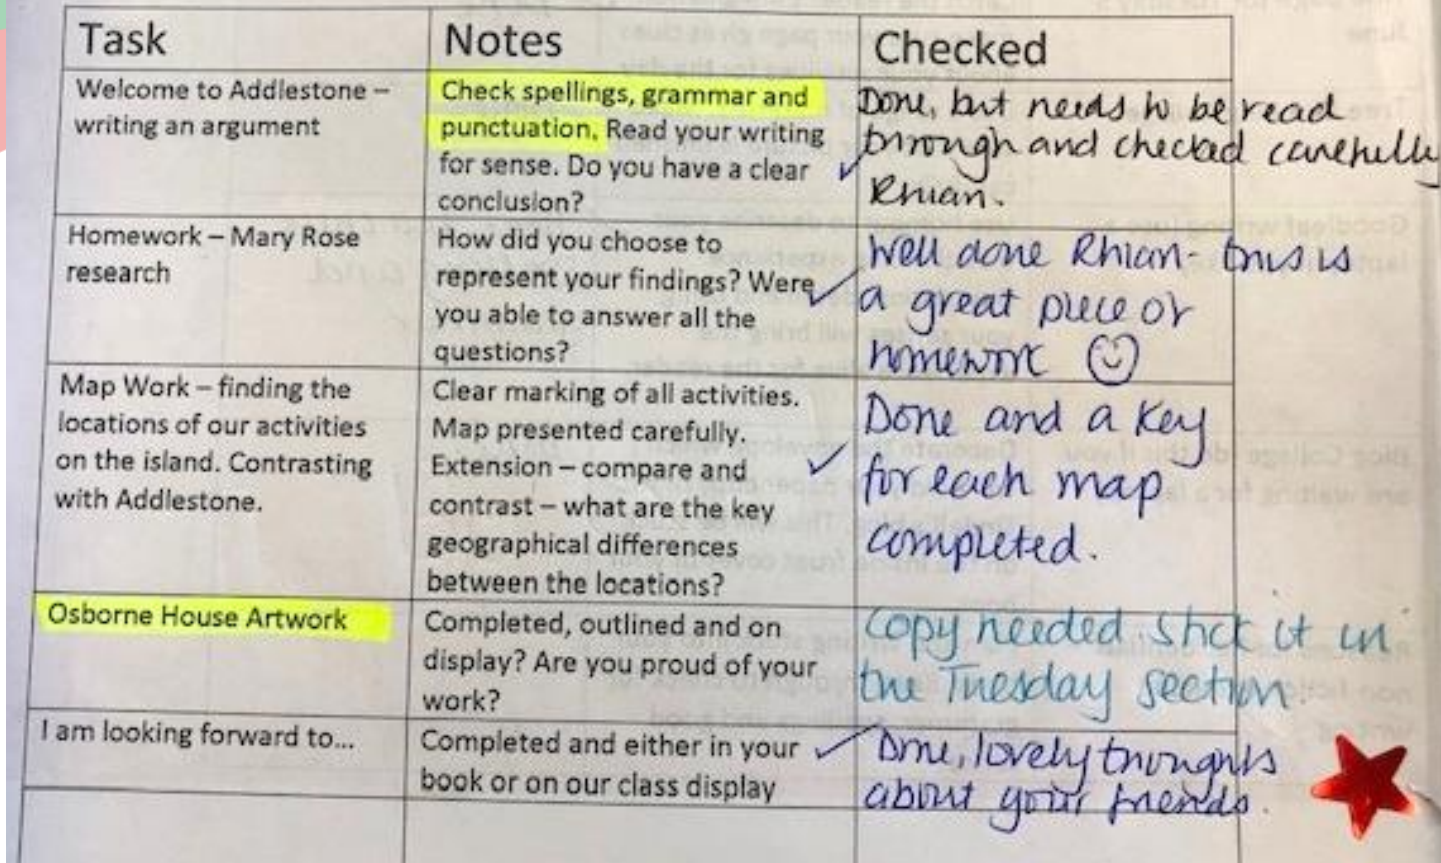 Task
Notes
Checked
Welcome to Addlestone –
writing an argument
Check spellings, grammar and
punctuation. Read your writing
for sense. Do you have a clear
conclusion?
Done, but needs to be read
through and checked carefully
Rhian.
Homework – Mary Rose
research
How did you choose to
represent your findings? Were
you able to answer all the
questions?
Well done Rhian - this is
a great piece of
homework
Map Work – finding the
locations of our activities
on the island. Contrasting
with Addlestone.
Clear marking of all activities.
Map presented carefully.
Extension – compare and
contrast – what are the key
geographical differences
between the locations?
Done and a key
for each map
completed.
Osborne House Artwork
Completed, outlined and on
display? Are you proud of your
work?
Copy needed. Stick it in
the Tuesday section.
I am looking forward to...
Completed and either in your
book or on our class display
Done, lovely thoughts
about your friends.